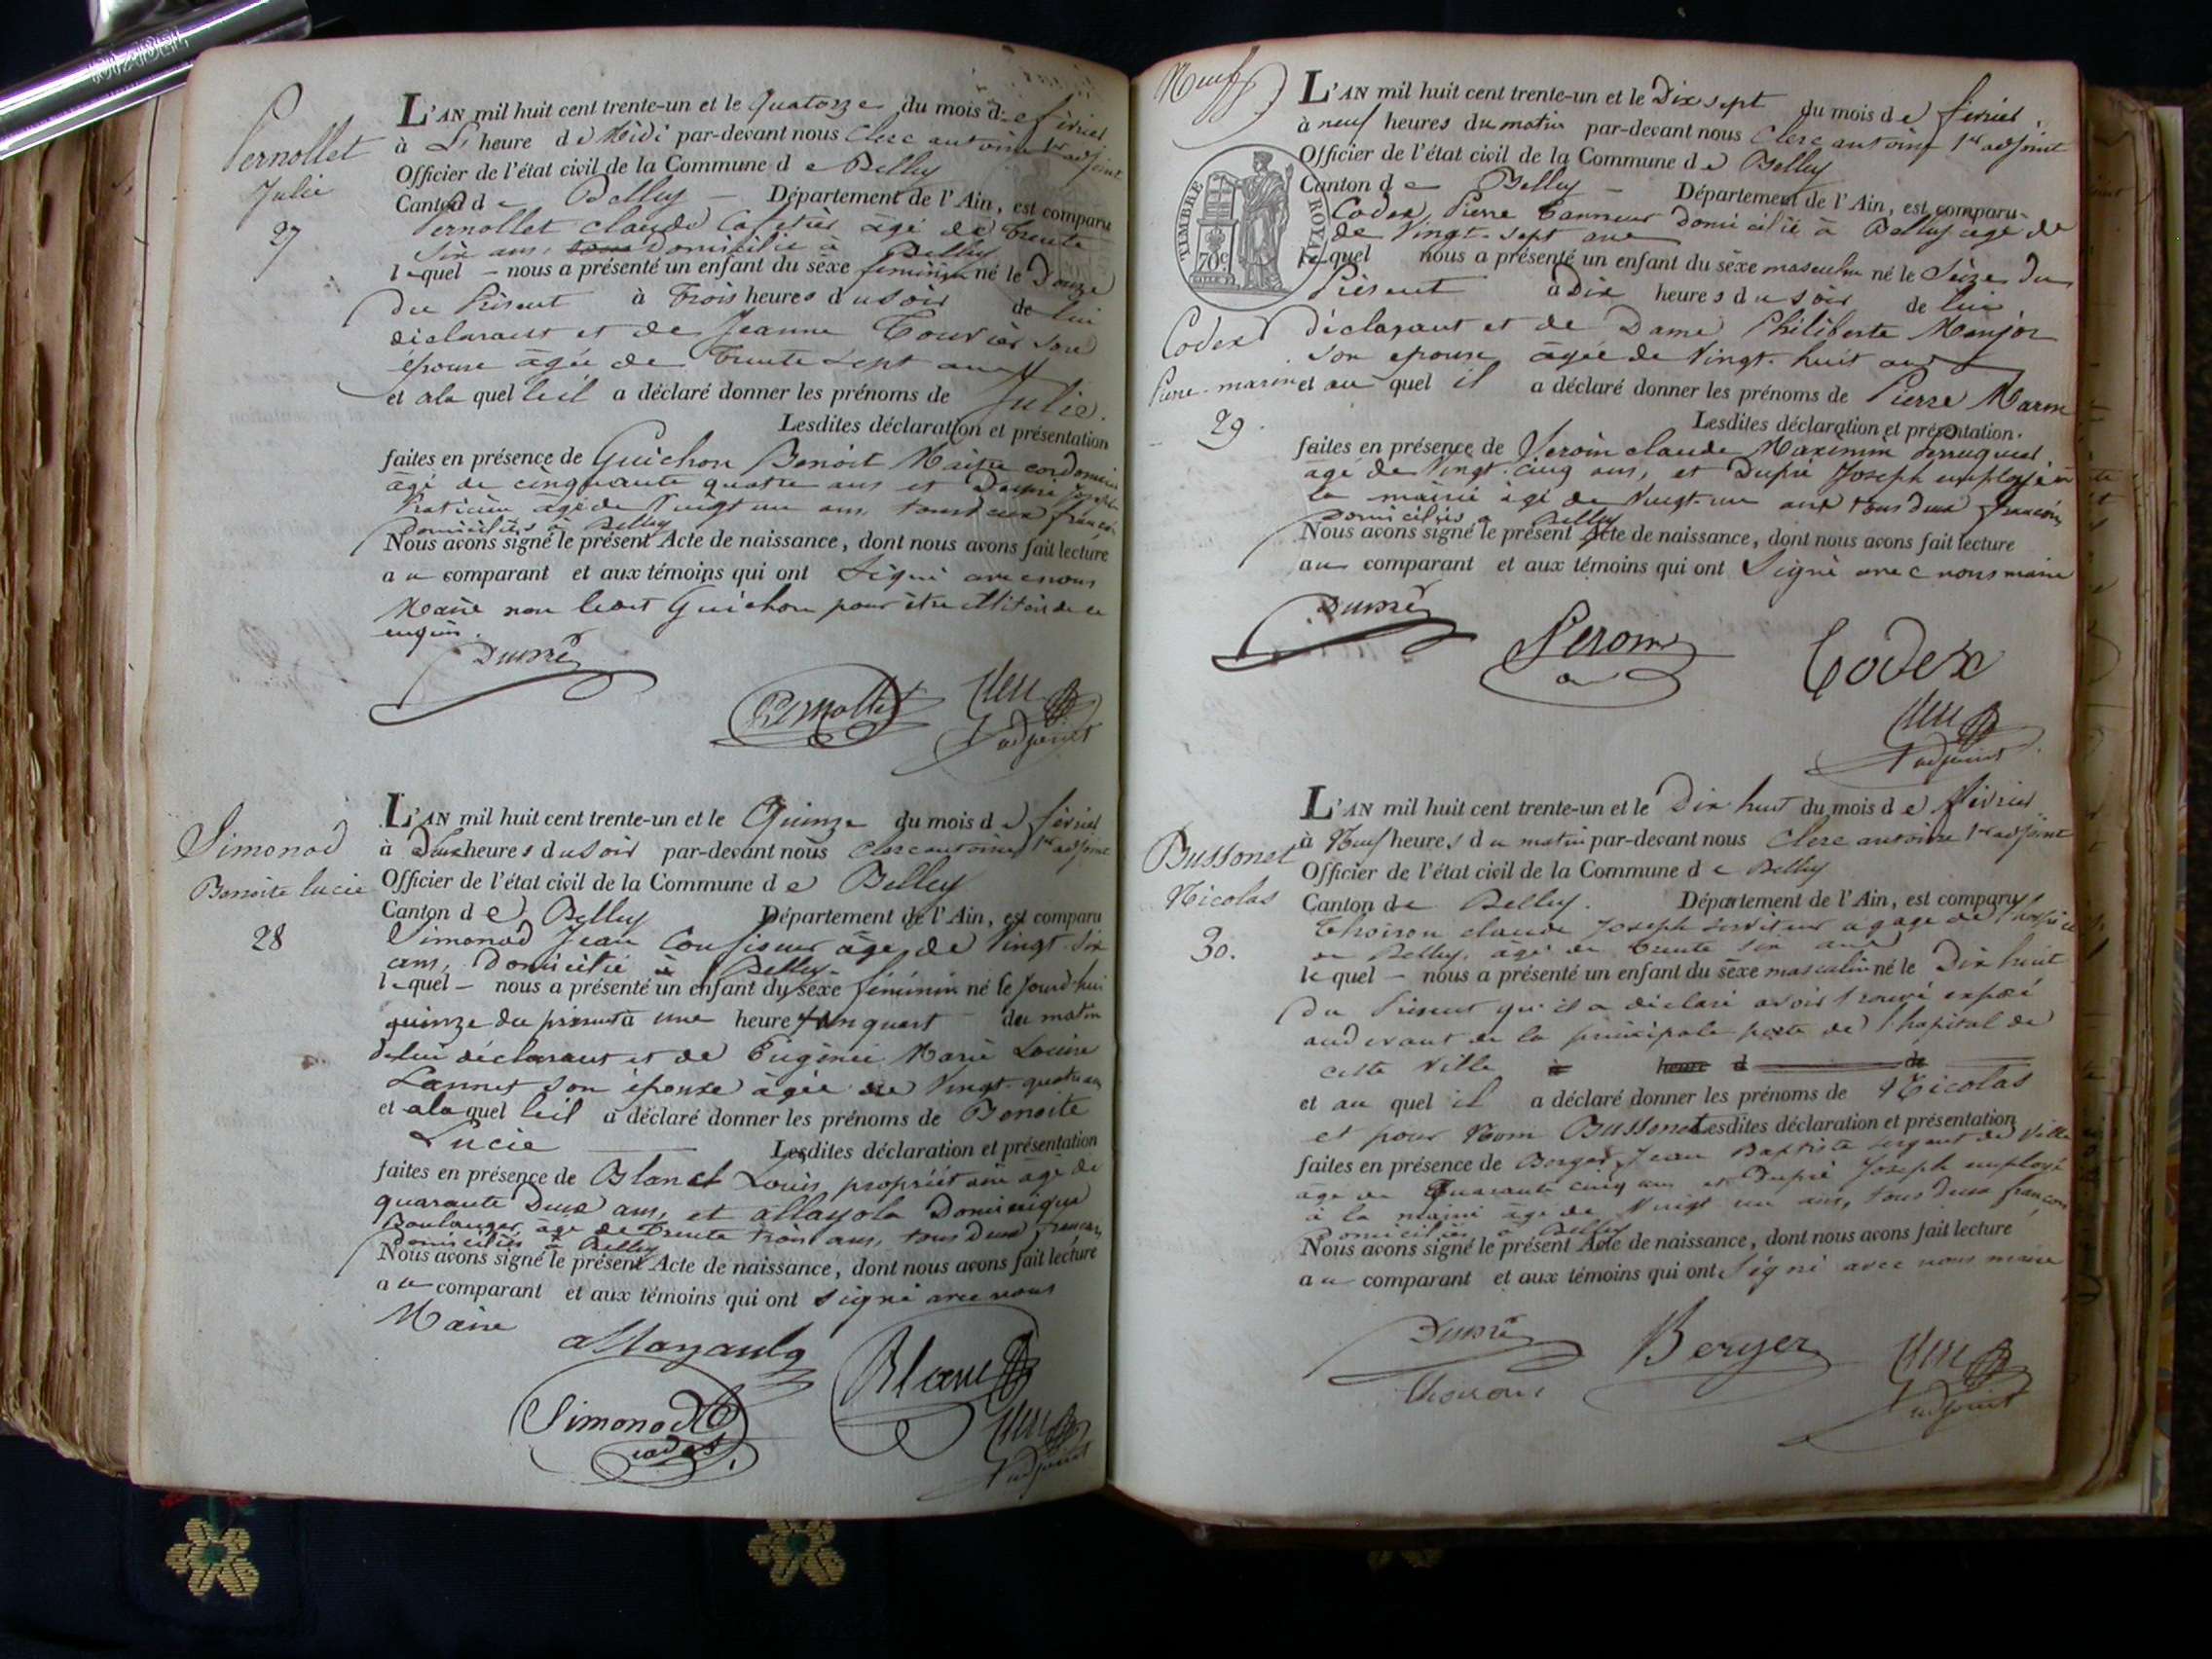 Pernollet
Julie
27
L'AN mil huit cent trente-un et le quatorze du mois de février
à L' heure de Midi par-devant nous Clerc antoine 1er adjoint
Officier de l'état civil de la Commune de Belley
Canton de Belley – Département de l'Ain, est comparu
Pernollet claude Cafetier âgé de trente
six ans, domicilié à Belley
lequel – nous a présenté un enfant du sèxe féminin né le Douze
du Présent à trois heures du soir de lui
déclarant et de Jeanne Touvier son
épouse âgée de trente sept ans
et a la quel le il a déclaré donner les prénoms de Julie.
Lesdites déclaration et présentation
faites en présence de Guichon Benoit Maître cordonnier
âgé de cinquante quatre ans et Dupré Joseph
Praticien âgé de Vingt un ans tous deux français
Domiciliés à Belley
Nous avons signé le présent Acte de naissance, dont nous avons fait lecture
au comparant et aux témoins qui ont Signé avec nous
Maire non ledit Guichon pour être illitéré de ce
enquis.
Dupré
Pernollet
Clerc
adjoint
Simonod
Benoite lucie
28
L'AN mil huit cent trente-un et le Quinze du mois de février
à Deux heures du soir par-devant nous Clerc antoine 1er adjoint
Officier de l'état civil de la Commune de Belley
Canton de Belley Département de l'Ain, est comparu
Simonod Jean Confiseur âgé de Vingt six
ans, Domicilié à Belley
lequel – nous a présenté un enfant du sèxe féminin né le jourd'hui
quinze du présent à une heure & un quart du matin
de lui déclarant et de Eugénie Marie Louise
Lannet son épouse âgée de Vingt quatre ans
et a la quel le il a déclaré donner les prénoms de Benoite
Lucie Lesdites déclaration et présentation
faites en présence de Blanc Louis propriétaire âgé de
quarante Deux ans, et allayola Dominique
Boulanger, âgé de trente trois ans, tous Deux français
Domiciliés à Belley
Nous avons signé le présent Acte de naissance, dont nous avons fait lecture
au comparant et aux témoins qui ont signé avec nous
Maire
Blanc
Simonod
Clerc
adjoint
Neuf
TIMBRE ROYAL
70c
Codex
Pierre-marin
29
L'AN mil huit cent trente-un et le Dix sept du mois de février
à neuf heures du matin par-devant nous Clerc antoine 1er adjoint
Officier de l'état civil de la Commune de Belley
Canton de Belley – Département de l'Ain, est comparu
Codex, Pierre tanneur domicilié à Belley âgé de
de Vingt-sept ans
lequel nous a présenté un enfant du sèxe masculin né le Seize du
Présent à Dix heures du soir de lui
déclarant et de Dame Philiberte Monjoz
son épouse, âgée de Vingt-huit ans
et au quel il a déclaré donner les prénoms de Pierre Marin
Lesdites déclaration et présentation
faites en présence de claude Maximin perruquier
âgé de Vingt-cinq ans, et Dupré Joseph employé à
la mairie âgé de Vingt-un ans tous deux français
Domiciliés à Belley
Nous avons signé le présent Acte de naissance, dont nous avons fait lecture
au comparant et aux témoins qui ont Signé avec nous maire
Dupré
Codex
Clerc
adjoint
Bussonet
Nicolas
30.
L'AN mil huit cent trente-un et le Dix huit du mois de février
à Neuf heures du matin par-devant nous Clerc antoine 1er adjoint
Officier de l'état civil de la Commune de Belley
Canton de Belley. Département de l'Ain, est comparu
Thoiron claude Joseph serviteur a gage de l'hospice
de Belley, âgé de trente six ans
lequel – nous a présenté un enfant du sèxe masculin né le Dix huit
du Présent qu'il a déclaré avoir trouvé exposé
au devant de la principale porte de l'hopital de
cette Ville à heure d de
et au quel il a déclaré donner les prénoms de Nicolas
et pour Nom Bussonet Lesdites déclaration et présentation
faites en présence de Berger Jean Baptiste sergent de Ville
âgé de quarante cinq ans et Dupré Joseph employé
à la mairie âgé de Vingt un ans, tous deux français
Domiciliés à Belley
Nous avons signé le présent Acte de naissance, dont nous avons fait lecture
au comparant et aux témoins qui ont Signé avec nous maire
Dupré
Berger
Clerc
Thoiron
adjoint